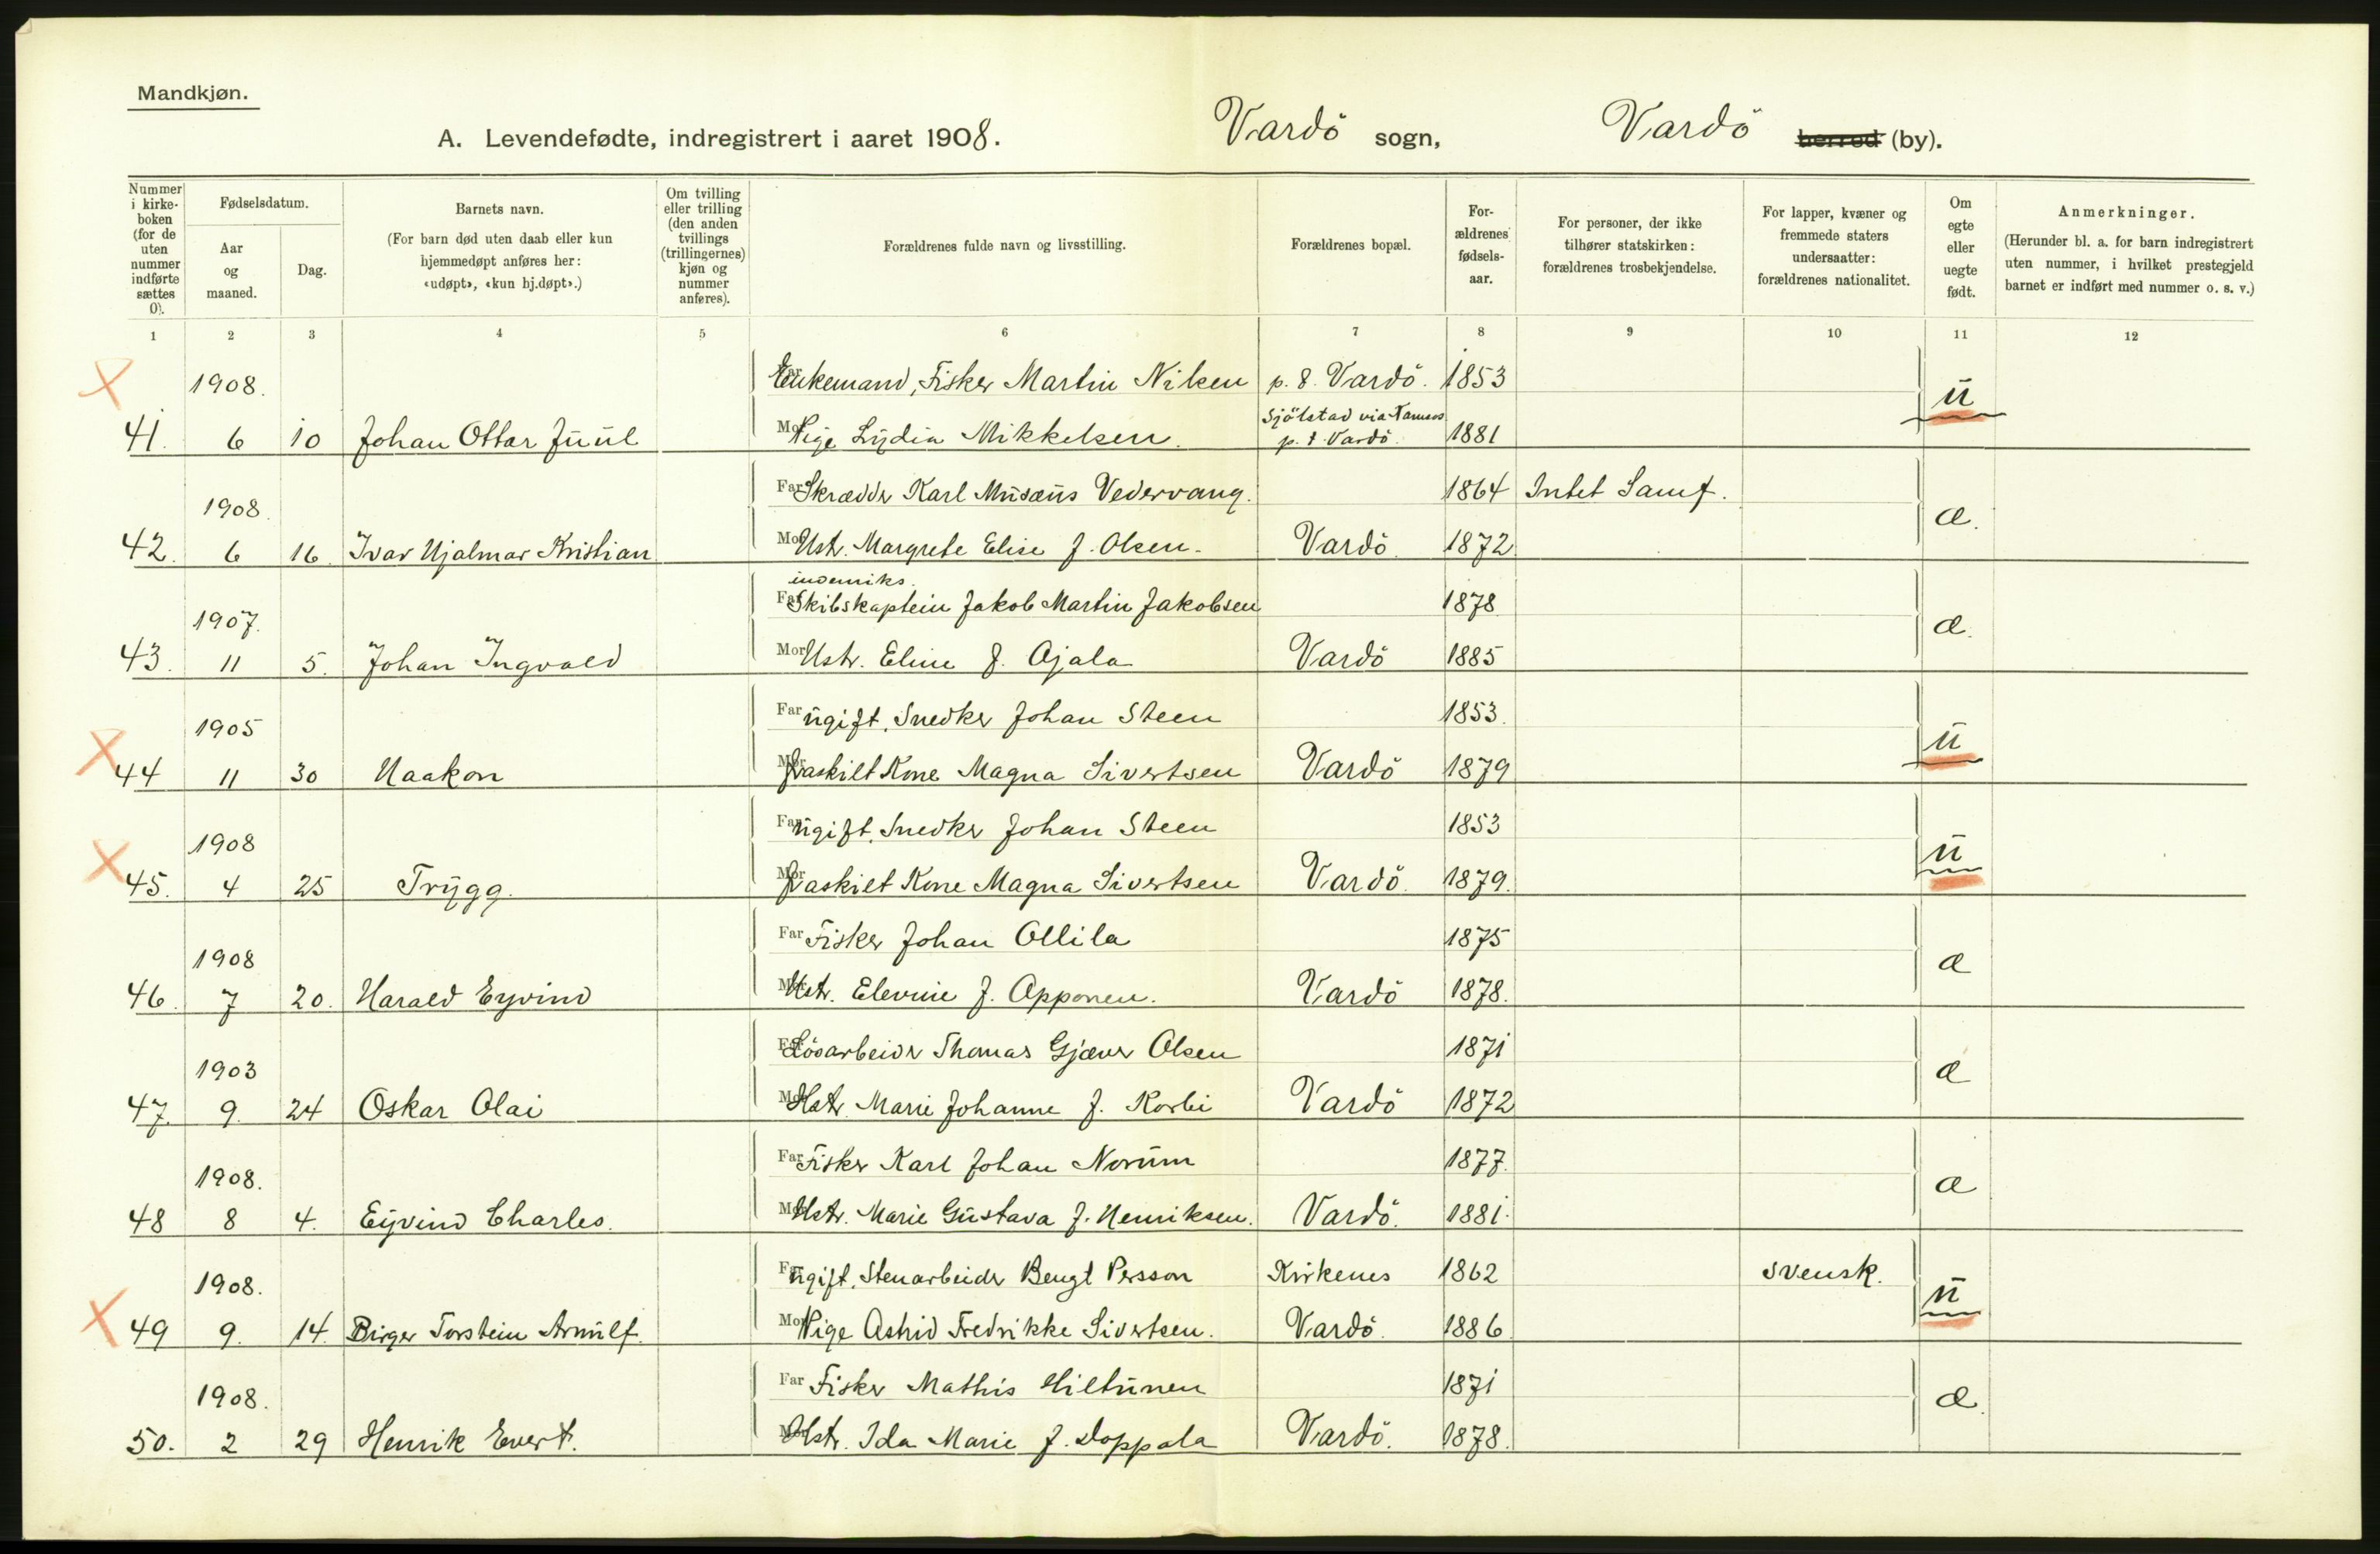 Mandkjøn.
A. Levendefødte, indregistrert i aaret 1908. Vardö sogn, Vardö herred (by).
Nummer i kirke-boken (for de uten nummer indførte sættes 0).
Fødselsdatum.
Aar og maaned.
Dag.
Barnets navn.
(For barn død uten daab eller kun hjemmedøpt anføres her: «udøpt», «kun hj.døpt».)
Om tvilling eller trilling (den anden tvillings (trillingernes) kjøn og nummer anføres).
Forældrenes fulde navn og livsstilling.
Forældrenes bopæl.
For-ældrenes fødsels-aar.
For personer, der ikke tilhører statskirken: forældrenes trosbekjendelse.
For lapper, kvæner og fremmede staters undersaatter: forældrenes nationalitet.
Om egte eller uegte født.
Anmerkninger.
(Herunder bl. a. for barn indregistrert uten nummer, i hvilket prestegjeld barnet er indført med nummer o. s. v.)
1 2 3 4 5 6 7 8 9 10 11 12
1908. Far Enkemand, Fisker Martin Nilsen p. t. Vardö. 1853 ü
41. 6 10 Johan Ottar Juul Mor Pige Lydia Mikkelsen. Sjölstad via p. t. Vardö. 1881
1908. Far Skrædder Karl Musæus Vedervang. 1864 Intet Samf. æ.
42. 6 16. Ivar Hjalmar Kristian Mor Hstr. Margrete Elise f. Olsen. Vardö. 1872
indenriks.
1907. Far Skibskaptein Jakob Martin Jakobsen 1878 æ.
43. 11 5. Johan Ingvald Mor Hstr. Eline f. Ojala Vardö 1885
1905 Far ugift, Snedker Johan Steen 1853. ü
44 11 30 Haakon Mor Fraskilt Kone Magna Sivertsen Vardö 1879
1908 Far ugift, Snedker Johan Steen 1853 ü
45. 4 25 Trygg. Mor Fraskilt Kone Magna Sivertsen Vardö. 1879.
1908 Far Fisker Johan Ollila 1875 æ
46. 7 20. Harald Eyvind Mor Hstr. Elevine f. Opponen. Vardö 1878.
1903 Far Lösarbeider Thomas Gjæver Olsen 1871 æ
47. 9. 24 Oskar Olai Mor Hstr. Marie Johanne f. Korbi Vardö 1872
1908. Far Fisker Karl Johan Norum 1877. æ
48 8 4. Eyvind Charles. Mor Hstr. Marie Gustava f. Henriksen. Vardö. 1881.
1908. Far ugift, Stenarbeider Bengt Persson Kirkenes 1862 svensk. ü
49 9. 14. Birger Torstein Arnulf. Mor Pige Astrid Fredrikke Sivertsen. Vardö. 1886.
1908. Far Fisker Mathis Hiltunen 1871 æ.
50. 2 29 Henrik Evert. Mor Hstr. Ida Marie f. Doppala Vardö. 1878.